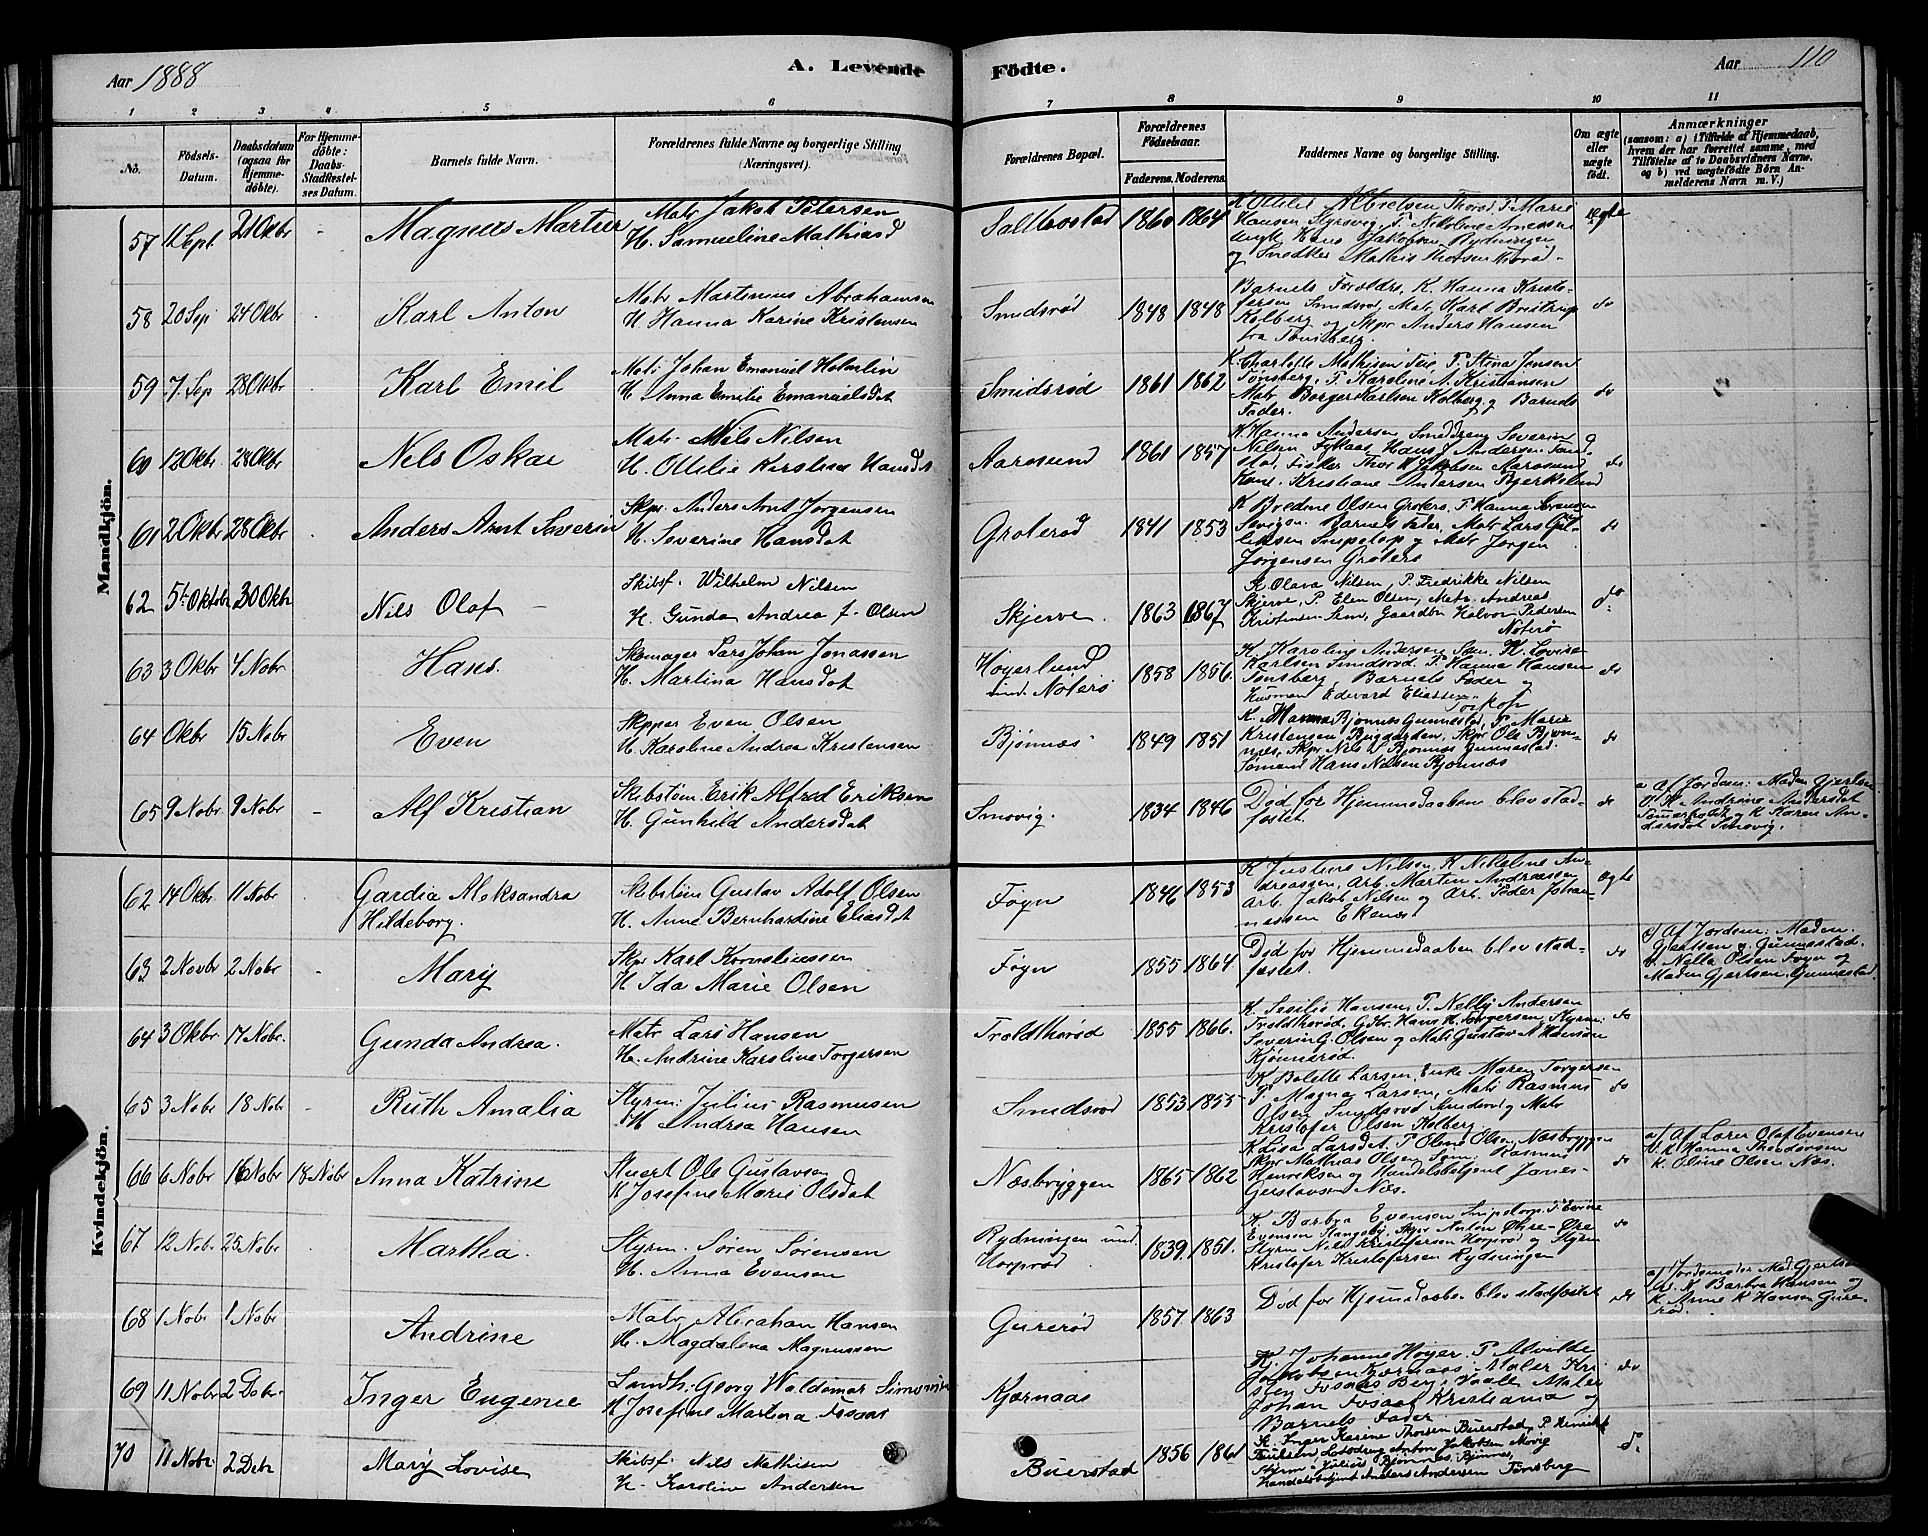 Aar 1888
A. Levende
Födte.
Aar 110
1 2 3 4 5 6 7 8 9 10 11
No.
Födsels-
Datum.
Daabsdatum
(ogsaa for
Hjemme-
döbte).
For Hjemme-
döbte:
Daabs-
Stadfæstel-
ses Datum.
Barnets fulde Navn.
Forældrenes fulde Navne og borgerlige Stilling
(Næringsvei).
Forældrenes Bopæl.
Forældrenes
Födselsaar.
Faderens. Moderens.
Faddernes Navne og borgerlige Stilling.
Om ægte
eller
uægte
födt.
Anmærkninger
(saasom: a) i Tilfælde af Hjemmedaab,
hvem der har forrettet samme, med
Tilföielse af to Daabsvidners Navne,
og b) ved uægtefödte Börn An-
melderens Navn m. V.)
Mandkjön.
57 11 Sept 21 Okbr - Magnus Martin
Matr Jakob Petersen
H. Samueline Mathiasd
1860 1864
ægte
58 20 Sep 24 Okbr Karl Anton
Matr Martinius Abrahamsen
H Hanna Karine Kristensen
Smidsrød 1848 1848
Barnets Forældre, K. Hanna Kristo-
fersen Smidsrød, Matr Karl
Kolberg og Skpr Anders Hansen
fra Tønsberg.
do
59 7 Sep 28 Okbr Karl Emil
Matr Johan Emanuel Holmlin
H Anna Emilie Emanuelsdat
Smidsrød 1861 1862
K. Charlotte Mathisen Teie, P. Stina Jensen
Tønsberg, P. Karoline A. Kristiansen
Matr Borger Karlsen Kolberg og Barnets
Fader.
do
60 12 Okbr 28 Okbr Nils Oskar
Matr. Nils Nilsen
H. Ottilie Kirstine Hansdat
Aarøsund 1861 1857
K. Hanna Andersen, Severin
Nilsen, Hans J Andersen
Fisker Thor Jakobsen Aarøsund
Kone Kristiane Andersen Bjerkelund
do
61 2 Okbr 28 Okbr Anders Arnt Severin
Skpr. Anders Arnt Jørgensen
H. Severine Hansdat
Grøterød 1841 1853
K Bredine Olsen Grøterø, P. Hanna Sørensen
Barnets Fader, Matr Lars Gul-
liksen og Matr Jørgen
Jørgensen Grøterø
do
62 5t Oktobr 30 Okbr Nils Olaf -
Skibsf. Wilhelm Nilsen
H. Gunda Andrea f. Olsen
Skjerve. 1863 1867
K Olava Nilsen, P. Fredrikke Nilsen
Skjerve, P. Elen Olsen, Matr. Andreas
Kristensen Sem, Gaardbr Halvor Pedersen
Nøterø
do
63 3 Okbr 4 Nobr Hans.
Skomager Lars Johan Jonassen
H. Martina Hansdat
Høyerlund
ind. Nøterø 1858 1856.
K. Karoline Andersen Sem, K. Lovise
Karlsen Smidsrød, P. Hanna Hansen
Tønsberg, Barnets Fader og
Husmand Edevard Eliassen
do
64 Okbr 15 Nobr Even
Skpper Even Olsen
H. Karoline Andrea Kristensen
Bjønnæs 1849 1851
K. Bjønnes Gunnestad, P. Marie
Kristensen, Skpr Ole Bjøn-
næs, Skpr Nils S Bjønnæs Gunnestad.
Sømand Hans Nilsen Bjønnæs
do
65 9 Nobr 9 Nobr - Alf Kristian
Skibstøm. Erik Alfred Eriksen
H. Gunhild Andersdat
Smovig. 1834 1846
Død før Hjemmedaaben blev stad-
fæstet.
do
a Af Jordem: Madm Gjertsen
V. K Andrine Andersdat
og K Karen An-
dersdat Smovig.
Kvindekjön.
62 14 Okbr 11 Nobr Gardia Aleksandra
Hildeborg.
Skibstøm Gustav Adolf Olsen
H. Anne Bernhardine Eliasdat
Føyn 1846 1853
K Justine Nilsen, K Nikoline An-
dreassen, Arb. Martin Andreassen
Arb. Jakob Nilsen og Arb. Peder Johan-
nessen Ekenæs
ægte
63 2 Novbr 2 Nobr - Mary
Skpr Karl Korneliussen
H Ida Marie Olsen
Føyn 1855 1864
Død før Hjemmedaaben blev stad-
fæstet.
do
a) Af Jordem: Madm.
Gjertsen Gunnestad.
V. Nella Olsen Føyn og
Madm Gjertsen, Gunnestad
64 3 Okbr 17 Nobr. Gunda Andrea.
Matr Lars Hansen
H. Andrine Karoline Torgersen
Troldthorød 1855 1866.
K Sesilie Hansen, P. Nelly Andersen
Troldthorød, Gdbr. Hans H. Torgersen, Styrm.
Severin G. Olsen og Matr Gustav A Hansen
Kjønnerød
do
65 3 Nobr 18 Nobr - Ruth Amalia
Styrm. Julius Rasmussen
H Andrea Hansen
Smidsrød 1853 1855
K Bolette Larsen, Enke Maren Torgersen
P. Magna Larsen, Matr Rasmus
Olsen Smidsrød og Matr
Kristofer Olsen Kolberg
do
66 6 Nobr 16 Nobr 18 Nobr Anna Katrine
Stuert Ole Gustavsen
K Josefine Marie Olsdat
Næsbryggen 1865 1862
K Lisa Larsdat, P. Oline Olsen, Næsbryggen
Skpr Mathias Olsen Sem. Rasmus
Henriksen og Handelsbetjent Janes
Gustavsen Næs.
do
a) Af Lærer Olaf Evensen
V. K Hanna Theodorsen
K. Oline Olsen Næs.
67 12 Nobr 25 Nobr Martha.
Styrm. Søren Sørensen
H. Anna Evensen
Rydningen und.
Horprød 1839. 1851.
K. Barbra Evensen
Evensen Stangeby, Skpr Anton
Styrm Nils Kristofersen Horprød og Styrm
Kristofer Kristofersen Rydningen
do
68 1 Nobr 1 Nobr Andrine
Matr Abraham Hansen
H. Magdalena Magnussen
Gurerød 1857 1863
Død før Hjemmedaaben blev stadfæstet
do
a) Jordemoder Mad. Gjertsen
V. K Barbra Hansen og
K. Anne K Hansen Gure-
rød.
69 11 Nobr 2 Debr Inger Eugenie
Landh. Georg Waldemar Simonsen
H Josefine Martina Fosaas
Kjærnaas
K. Johanne Høyer. P Alvilde
Jakobsen Kjærnaas, Maler
Johan Fosaas Kristiania og
Barnets Fader
do
70 11 Nobr 2 Debr Mary Lovise
Skibsf Nils Mathisen
H. Karoline Andersen
Buerstad 1856 1861
K Inger Karine Thorsen Buerstad, P. Henrikke
Anton Jakobsen
Styrm Julius Bjønnes, Bjønnes,
Handelsbetjent Anders Andersen Tønsberg
do